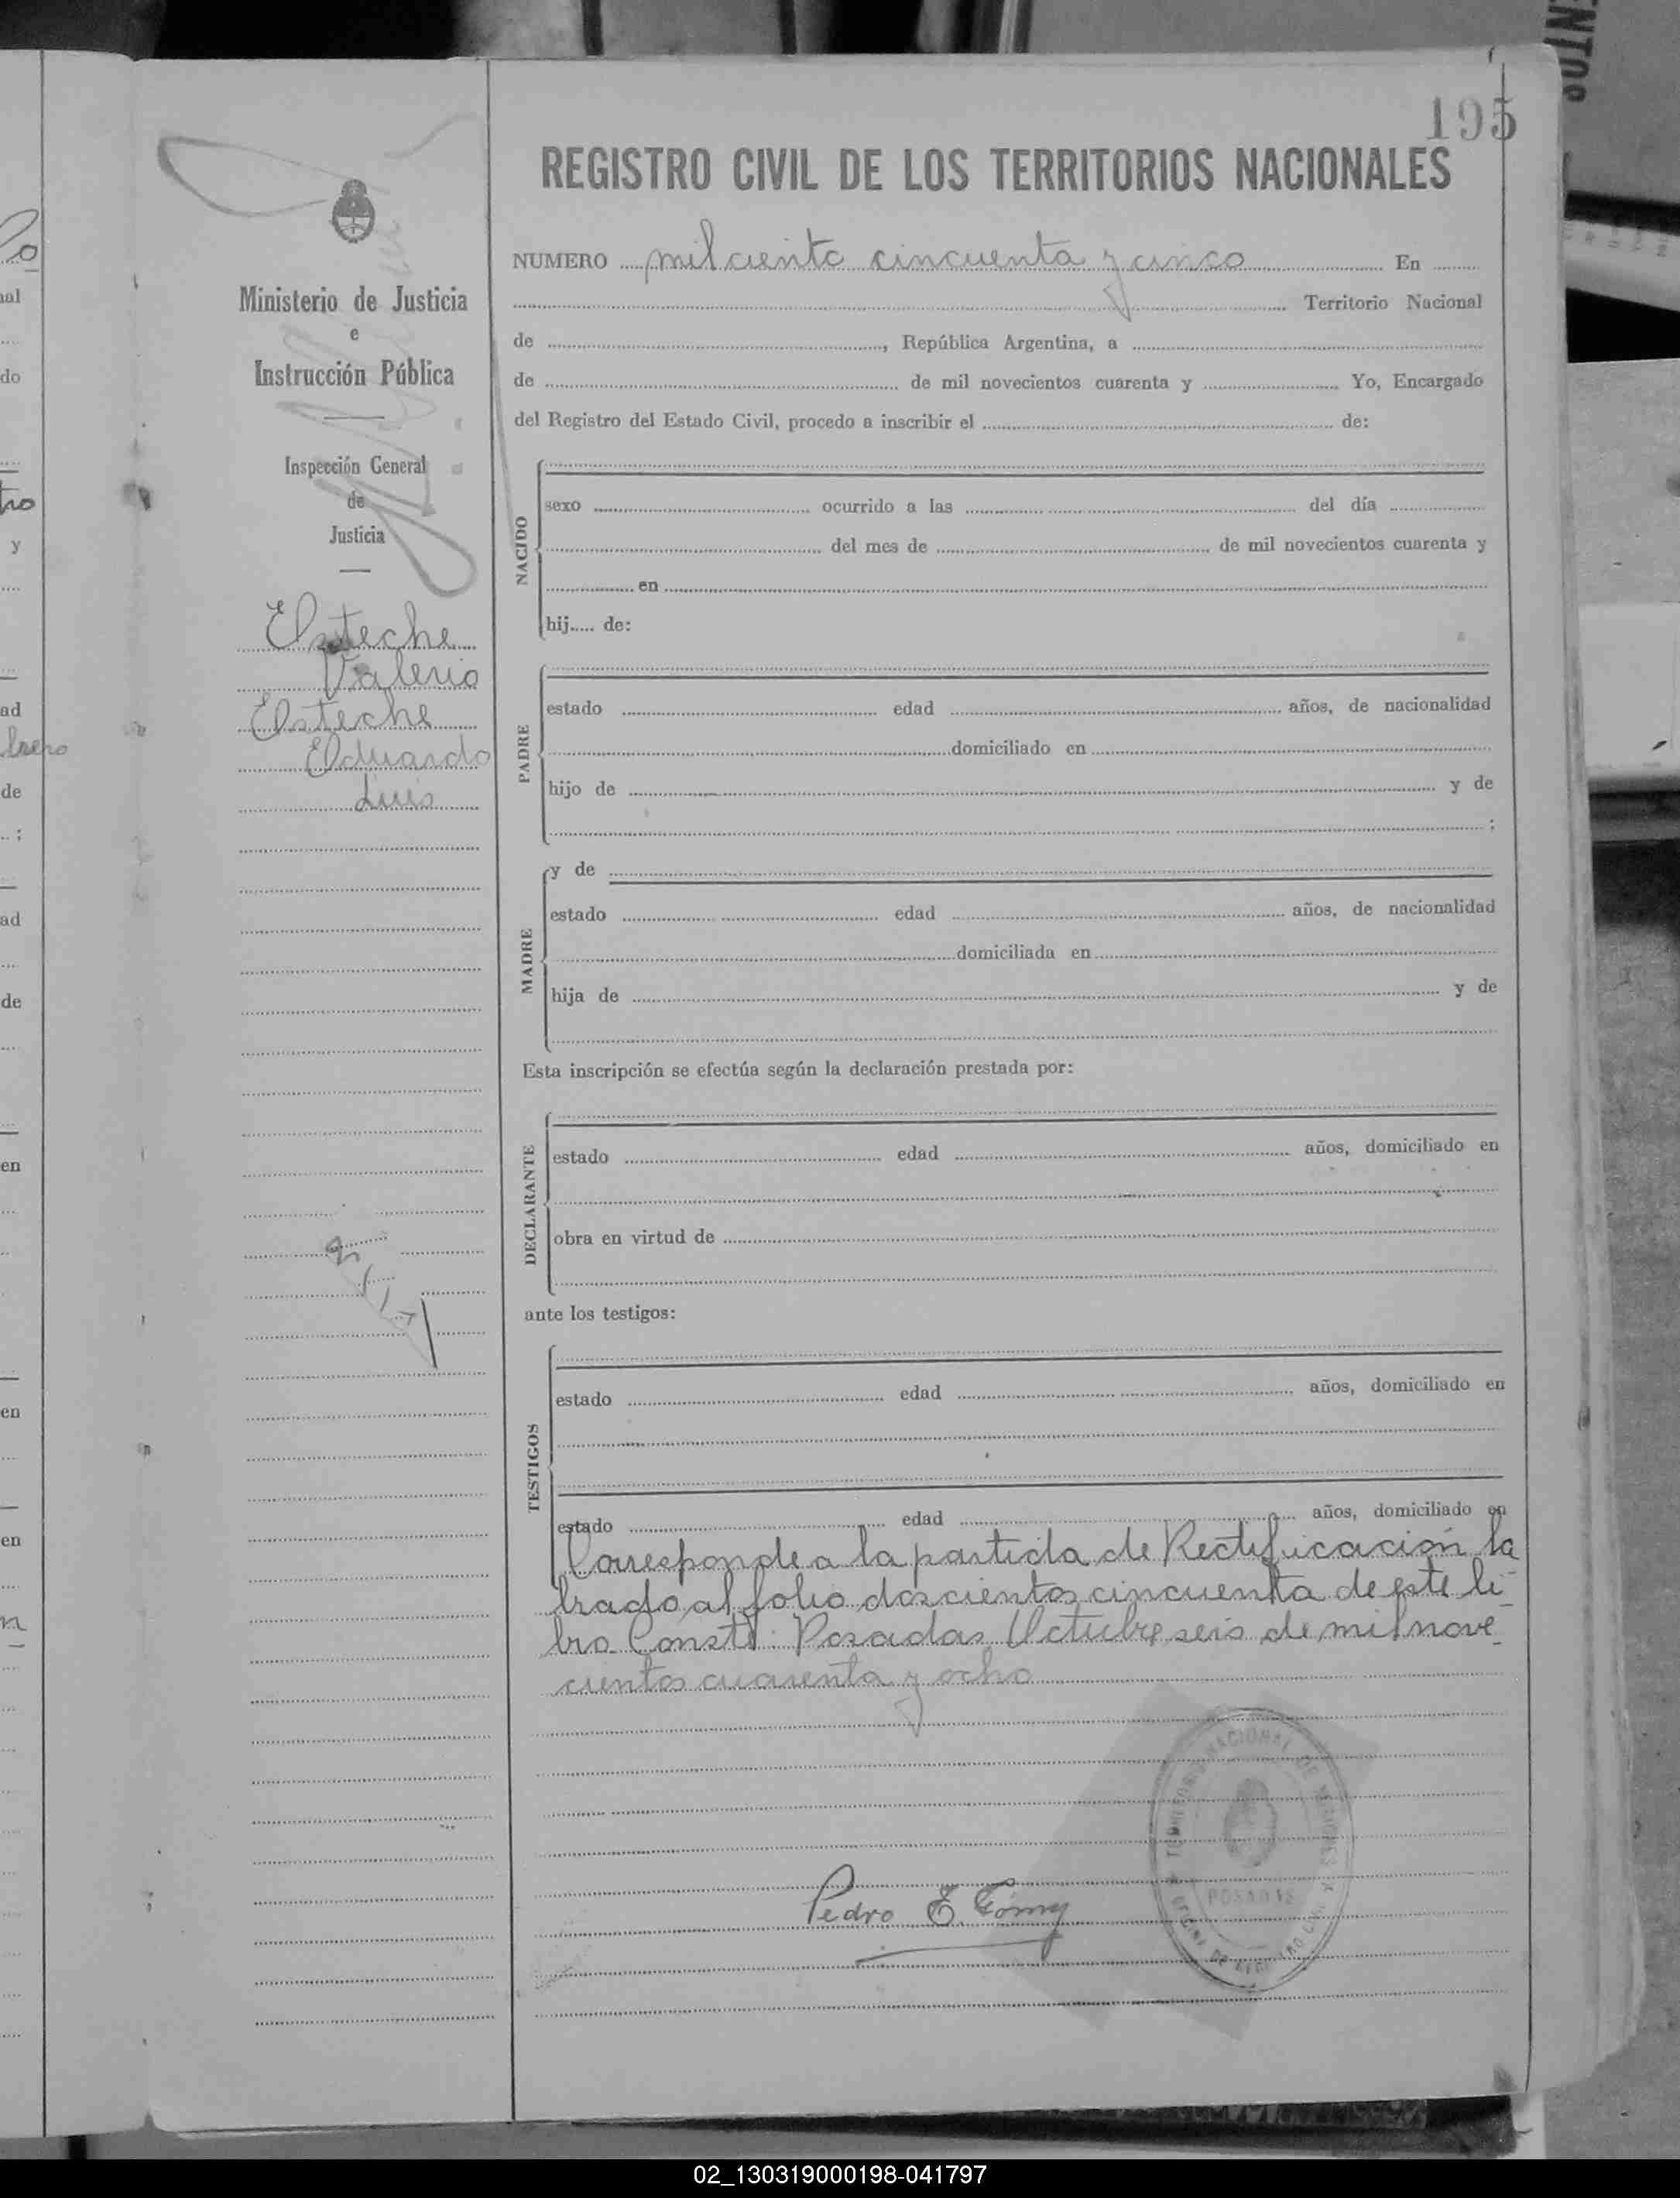 195
REGISTRO CIVIL DE LOS TERRITORIOS NACIONALES
Ministerio de Justicia
e
Instrucción Pública
Inspección General
de
Justicia
Elsteche
Valerio
Elsteche
Eduardo
Luis
NUMERO mil ciento cincuenta y cinco En
Territorio Nacional
de , República Argentina, a
de de mil novecientos cuarenta y Yo, Encargado
del Registro del Estado Civil, procedo a inscribir el de:
NACIDO
sexo ocurrido a las del día
del mes de de mil novecientos cuarenta y
en
hij..... de:
PADRE
estado edad años, de nacionalidad
domiciliado en
hijo de y de
;
MADRE
y de
estado edad años, de nacionalidad
domiciliada en
hija de y de
Esta inscripción se efectúa según la declaración prestada por:
DECLARANTE
estado edad años, domiciliado en
obra en virtud de
ante los testigos:
TESTIGOS
estado edad años, domiciliado en
estado edad años, domiciliado en
Corresponde a la partida de Rectificación la
brado al folio doscientos cincuenta de este li-
bro. Conste: Posadas, Octubre seis de mil nove-
cientos cuarenta y ocho
Pedro E.
TERRITORIO NACIONAL DE MISIONES
POSADAS
OFICINA DE REGISTRO CIVIL
02_130319000198-041797